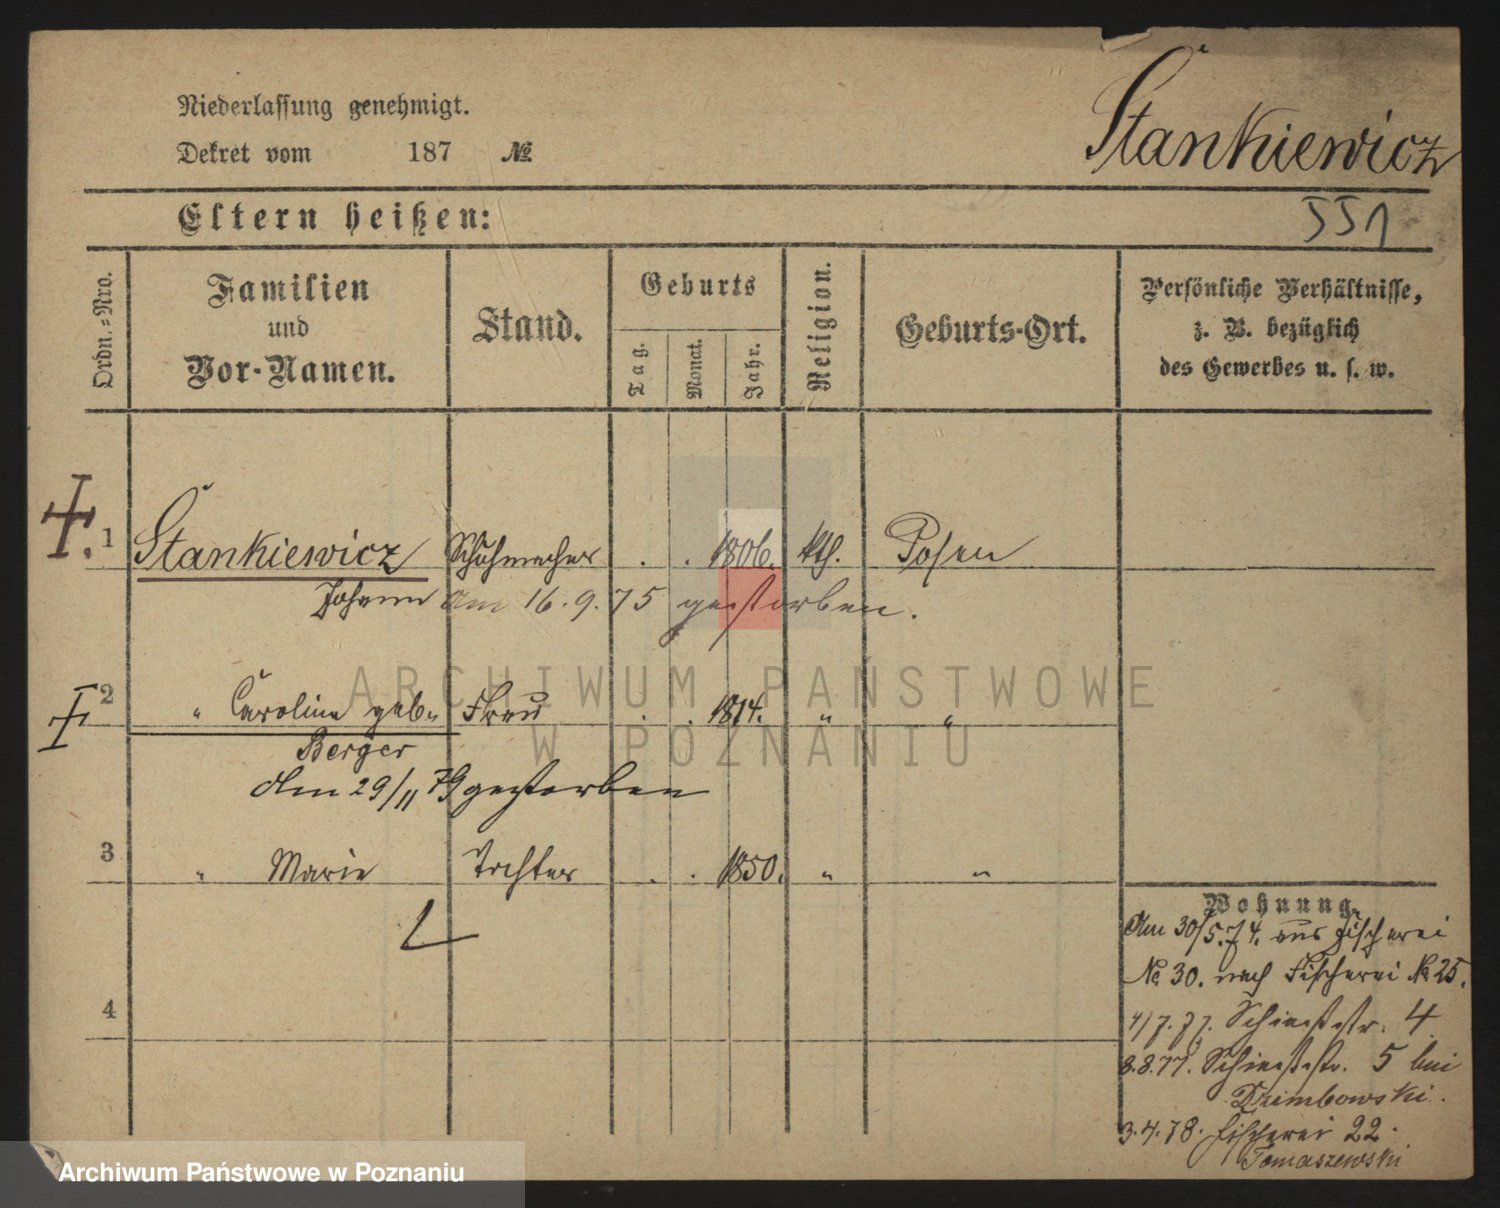 Stankiewicz
Niederlassung genehmigt.
Dekret vom 187 №
Eltern heißen:
551
Ordn.-Nro.
Familien
und
Vor-Namen.
Stand.
Geburts
Tag.
Monat.
Jahr.
Religion.
Geburts-Ort.
Persönliche Verhältnisse,
z. B. bezüglich
des Gewerbes u. s. w.
1 Stankiewicz Schuhmacher . . 1806. kth. Posen
Johann am 16.9.75 gestorben.
2 " Caroline geb. Frau . . 1814. " "
Berger
Am 29/11 79 gestorben
3 " Marie Tochter . . 1850. " "
4
Wohnung.
Am 30/5.74. aus Fischerei
No 30. nach Fischerei No 25.
4/7.77. 4
8.8.77. 5 bei
Dzimbowski.
3.4.78. Fischerei 22.
Tomaszewski
ARCHIWUM PAŃSTWOWE
W POZNANIU
Archiwum Państwowe w Poznaniu